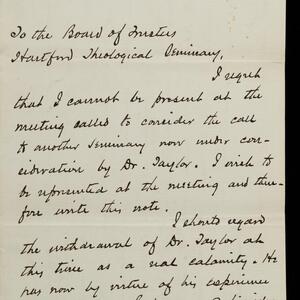 To the Board of Trustees
Hartford Theological Seminary,
I regret
that I cannot be present at the
meeting called to consider the call
to another Seminary now under con-
sideration by Dr. Taylor. I wish to
be represented at the meeting and there-
fore write this note.
I should regard
the withdrawal of Dr. Taylor at
this time as a real calamity. He
has now by virtue of his experience